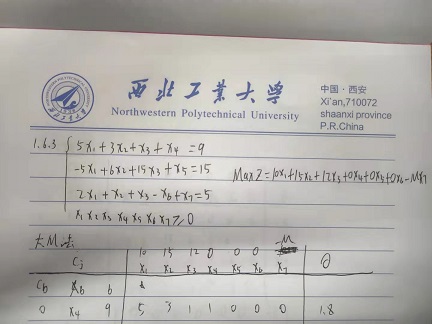 西北工业大学
Northwestern Polytechnical University
中国·西安
Xi'an,710072
shaanxi province
P.R.China
1.6.3 5x₁+3x₂+x₃+x₄=9
-5x₁+6x₂+15x₃+x₅=15
2x₁+x₂+x₃-x₆+x₇=5
x₁ x₂ x₃ x₄ x₅ x₆ x₇≥0
Max Z=10x₁+15x₂+12x₃+0x₄+0x₅+0x₆-Mx₇
大M法
Cj 10 15 12 0 0 0 -M θ
x₁ x₂ x₃ x₄ x₅ x₆ x₇
Cb Xb b
0 x₄ 9 5 3 1 1 0 0 0 1.8